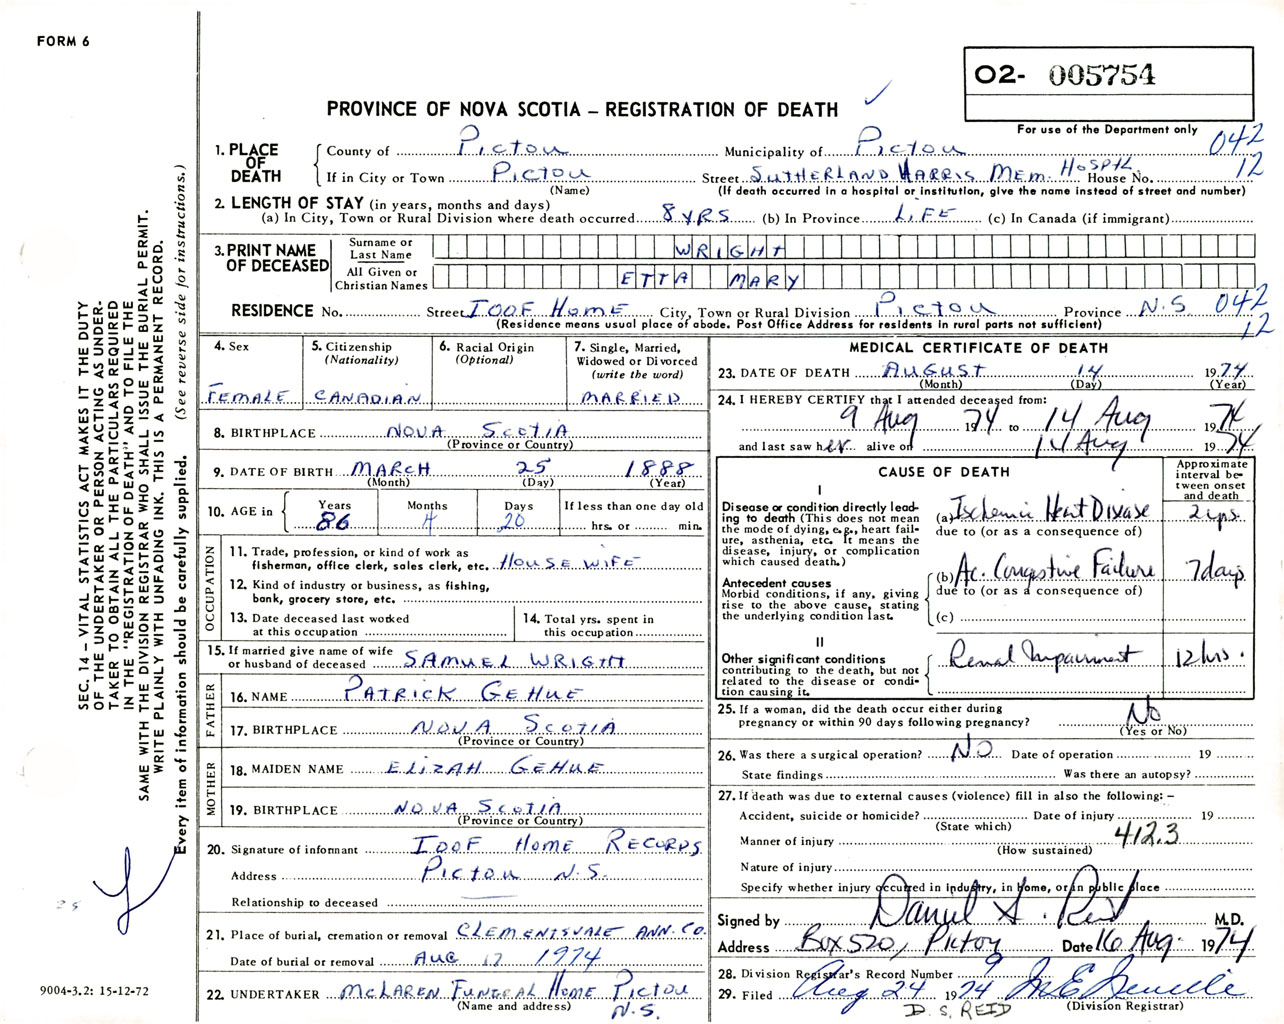 FORM 6
O2- 005754
PROVINCE OF NOVA SCOTIA – REGISTRATION OF DEATH
For use of the Department only
042
12
1. PLACE OF DEATH
County of Pictou Municipality of Pictou
If in City or Town Pictou Street SUTHERLAND HARRIS MEM. HOSPTL House No.
(Name) (If death occurred in a hospital or institution, give the name instead of street and number)
2. LENGTH OF STAY (in years, months and days)
(a) In City, Town or Rural Division where death occurred 8 YRS (b) In Province LIFE (c) In Canada (if immigrant)
3. PRINT NAME OF DECEASED
Surname or Last Name WRIGHT
All Given or Christian Names ETTA MARY
RESIDENCE No. Street IOOF HOME City, Town or Rural Division PICTOU Province N.S. 042
12
(Residence means usual place of abode. Post Office Address for residents in rural parts not sufficient)
4. Sex
FEMALE
5. Citizenship (Nationality)
CANADIAN
6. Racial Origin (Optional)
7. Single, Married, Widowed or Divorced (write the word)
MARRIED
8. BIRTHPLACE NOVA SCOTIA
(Province or Country)
9. DATE OF BIRTH MARCH 25 1888
(Month) (Day) (Year)
10. AGE in Years 86 Months 4 Days 20 If less than one day old hrs. or min.
OCCUPATION
11. Trade, profession, or kind of work as
fisherman, office clerk, sales clerk, etc. HOUSEWIFE
12. Kind of industry or business, as fishing,
bank, grocery store, etc.
13. Date deceased last worked
at this occupation
14. Total yrs. spent in
this occupation
15. If married give name of wife
or husband of deceased SAMUEL WRIGTH
FATHER
16. NAME PATRICK GEHUE
17. BIRTHPLACE NOVA SCOTIA
(Province or Country)
MOTHER
18. MAIDEN NAME ELIZAH GEHUE
19. BIRTHPLACE NOVA SCOTIA
(Province or Country)
20. Signature of informant IOOF HOME RECORDS
Address PICTOU N.S.
Relationship to deceased
21. Place of burial, cremation or removal CLEMENTSVALE ANN. CO.
Date of burial or removal AUG 17 1974
22. UNDERTAKER McLAREN FUNERAL HOME PICTOU
(Name and address) N.S.
MEDICAL CERTIFICATE OF DEATH
23. DATE OF DEATH AUGUST 14 1974
(Month) (Day) (Year)
24. I HEREBY CERTIFY that I attended deceased from:
9 Aug 1974 to 14 Aug 1974
and last saw her alive on 14 Aug 1974
CAUSE OF DEATH
Approximate interval between onset and death
I
Disease or condition directly leading to death (This does not mean the mode of dying, e.g., heart failure, asthenia, etc. It means the disease, injury, or complication which caused death.)
(a) Ischemic Heart Disease 2 yrs
due to (or as a consequence of)
Antecedent causes
Morbid conditions, if any, giving rise to the above cause, stating the underlying condition last.
(b) Ac. Congestive Failure 7 days
due to (or as a consequence of)
(c)
II
Other significant conditions
contributing to the death, but not related to the disease or condition causing it.
Renal Impairment 12 hrs.
25. If a woman, did the death occur either during
pregnancy or within 90 days following pregnancy? No
(Yes or No)
26. Was there a surgical operation? NO Date of operation 19
State findings Was there an autopsy?
27. If death was due to external causes (violence) fill in also the following: –
Accident, suicide or homicide? Date of injury 19
(State which)
Manner of injury 412.3
(How sustained)
Nature of injury
Specify whether injury occurred in industry, in home, or in public place
Signed by Daniel S. Reid M.D.
Address Box 520, Pictou Date 16 Aug 1974
28. Division Registrar's Record Number 9
29. Filed Aug 24 1974
(Division Registrar)
D. S. REID
SEC. 14 – VITAL STATISTICS ACT MAKES IT THE DUTY
OF THE UNDERTAKER OR PERSON ACTING AS UNDER-
TAKER TO OBTAIN ALL THE PARTICULARS REQUIRED
IN THE "REGISTRATION OF DEATH" AND TO FILE THE
SAME WITH THE DIVISION REGISTRAR WHO SHALL ISSUE THE BURIAL PERMIT.
WRITE PLAINLY WITH UNFADING INK. THIS IS A PERMANENT RECORD.
Every item of information should be carefully supplied. (See reverse side for instructions.)
9004-3.2: 15-12-72